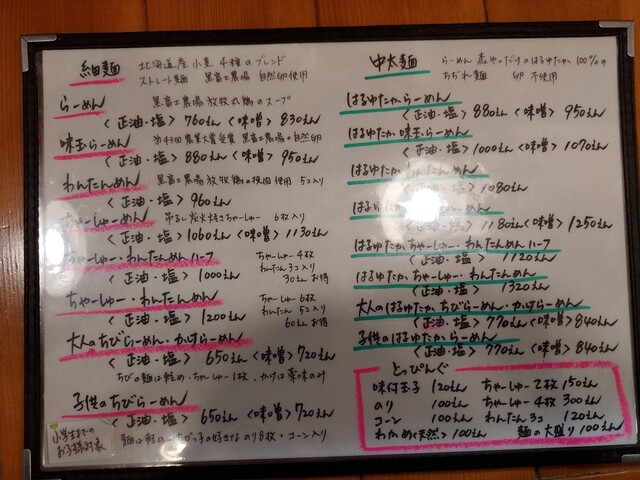 細麺 北海道産小麦4種のブレンド
ストレート麺 黒富士農場 自然卵使用
らーめん 黒富士農場 放牧丸鶏のスープ
〈正油・塩〉760えん〈味噌〉830えん
味玉らーめん 第43回農業大賞受賞 黒富士農場の自然卵
〈正油・塩〉880えん〈味噌〉950えん
わんたんめん 黒富士農場放牧鶏の挽肉使用 5コ入り
〈正油・塩〉960えん
ちゃーしゅーめん 吊るし炭火焼きちゃーしゅー 6枚入り
〈正油・塩〉1060えん〈味噌〉1130えん
ちゃーしゅー・わんたんめん ハーフ ちゃーしゅー4枚
わんたん3コ入り
〈正油・塩〉1000えん 30えんお得
ちゃーしゅー・わんたんめん ちゃーしゅー6枚
わんたん5コ入り
〈正油・塩〉1200えん 60えんお得
大人のちびらーめん・かけらーめん
〈正油・塩〉650えん〈味噌〉720えん
ちびの麺は軽め・ちゃーしゅー1枚、かけは薬味のみ
子供のちびらーめん
〈正油・塩〉650えん〈味噌〉720えん
小学生までのお子様対象 麺は軽め ちびっ子の好きな のり8枚・コーン入り
中太麺 らーめん 森やだけのはるゆたか100%の
ちぢれ麺 卵 不使用
はるゆたからーめん
〈正油・塩〉880えん〈味噌〉950えん
はるゆたか 味玉らーめん
〈正油・塩〉1000えん〈味噌〉1070えん
はるゆたか わんたんめん
〈正油・塩〉1080えん
はるゆたか ちゃーしゅーめん
〈正油・塩〉1180えん〈味噌〉1250えん
はるゆたか ちゃーしゅー・わんたんめん ハーフ
〈正油・塩〉1120えん
はるゆたか ちゃーしゅー・わんたんめん
〈正油・塩〉1320えん
大人のはるゆたか ちびらーめん・かけらーめん
〈正油・塩〉770えん〈味噌〉840えん
子供のはるゆたからーめん
〈正油・塩〉770えん〈味噌〉840えん
とっぴんぐ
味付玉子 120えん ちゃーしゅー2枚 150えん
のり 100えん ちゃーしゅー4枚 300えん
コーン 100えん わんたん3コ 120えん
わかめ〈天然〉100えん 麺の大盛り 100えん